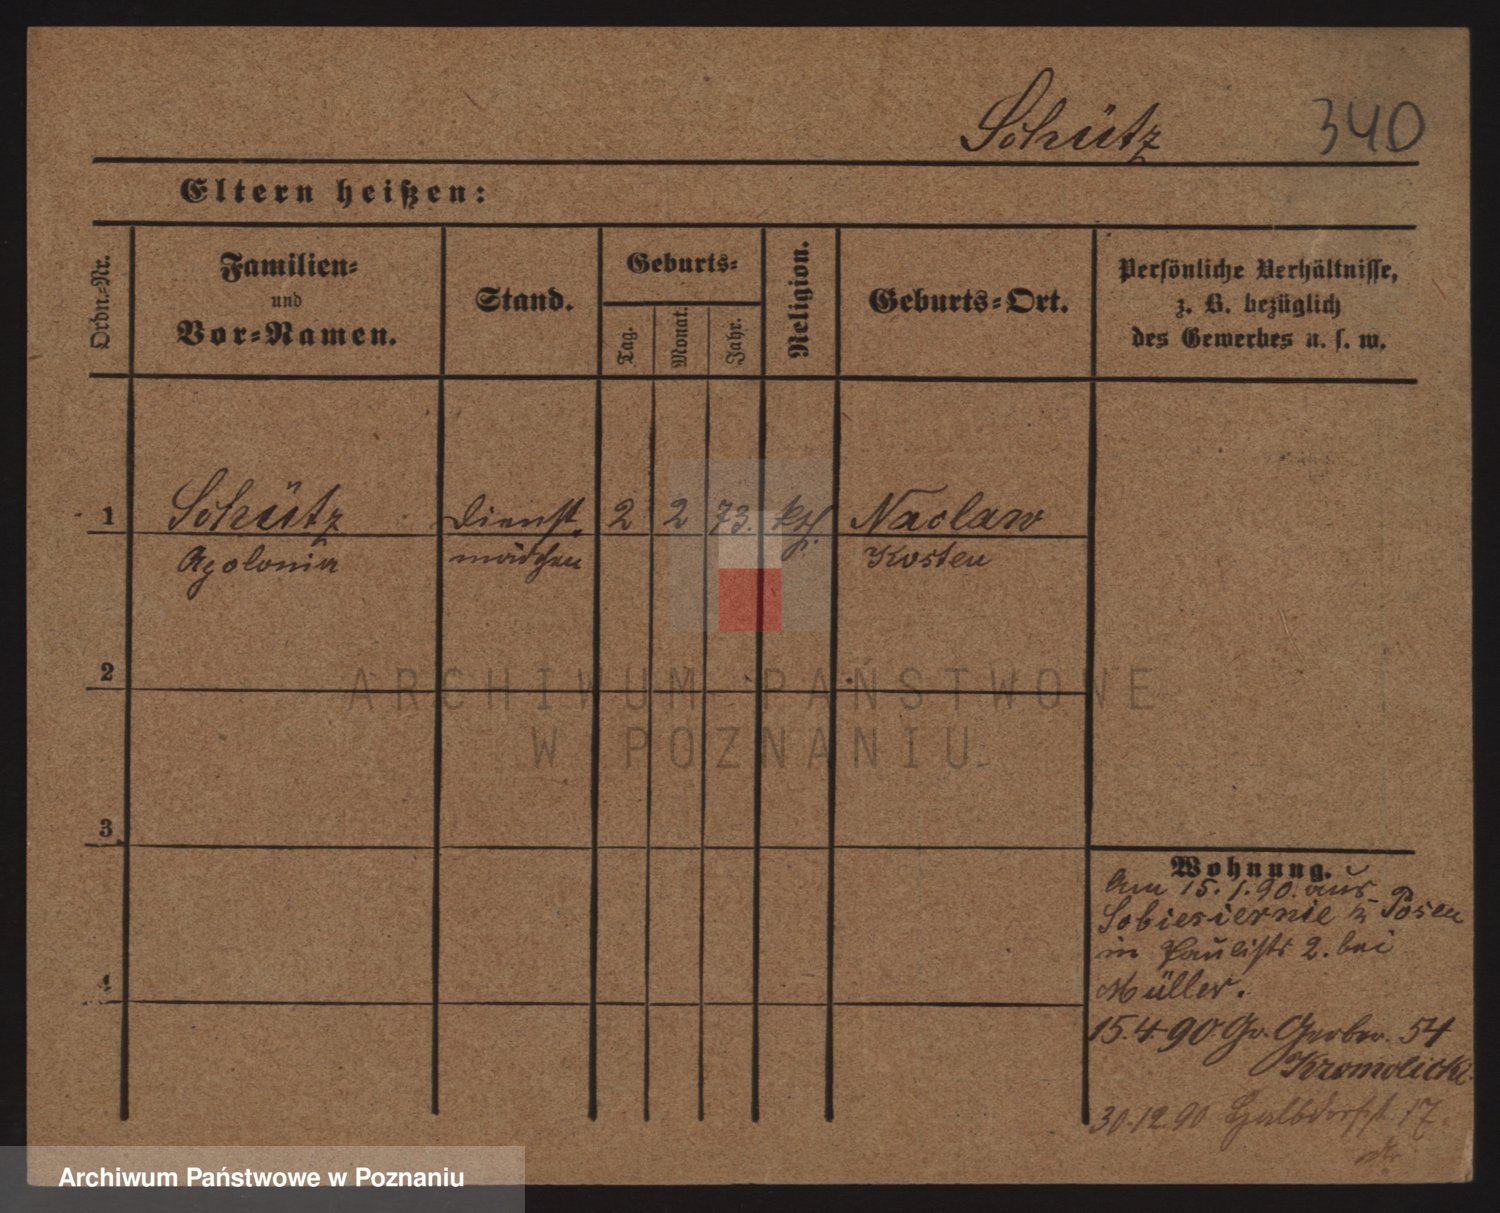 Schütz 340
Eltern heißen:
Ordn.-Nr.
Familien-
und
Vor-Namen.
Stand.
Geburts-
Tag.
Monat.
Jahr.
Religion.
Geburts-Ort.
Persönliche Verhältnisse,
z. B. bezüglich
des Gewerbes u. s. w.
1 Schütz Dienst- 2 2 73. kth. Naclaw
Apolonia mädchen Kosten
2
3
4
Wohnung.
Am 15.1.90. aus
Sobiesiernie Posen
in Paulistr 2. bei
Müller.
15.4.90. Gr. Gerber. 54
Kromolicki
30.12.90 Halbdorfst 17.
ARCHIWUM PAŃSTWOWE
W POZNANIU
Archiwum Państwowe w Poznaniu